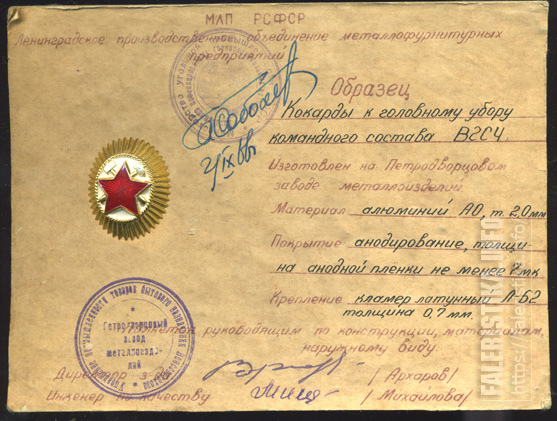 МЛП РСФСР
Ленинградское производственное объединение металлофурнитурных
предприятий
Образец
Кокарды к головному убору
командного состава ВГСЧ.
Изготовлен на Петродворцовом
заводе металлоизделий
Материал алюминий АО, т. 2,0 мм
Покрытие анодирование, толщи-
на анодной плёнки не менее 7 мк
Крепление кламер латунный Л-62
толщина 0,7 мм.
руководящим по конструкции, материалам,
наружному виду.
Директор
/ Архаров /
Инженер по качеству
/ Михайлова /
Петродворцовый
завод
металлоизде-
лий
FALERISTIKA.INFO